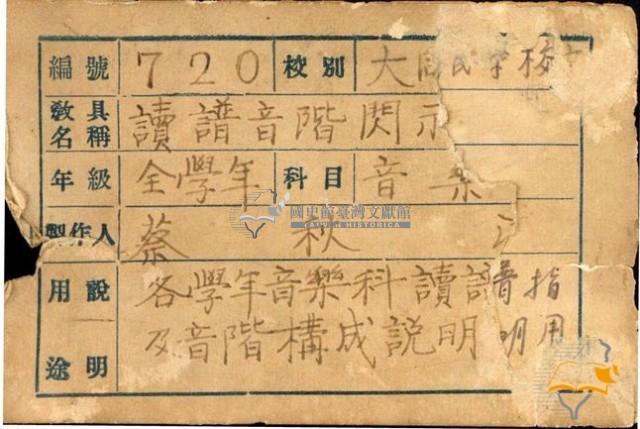 編號 720 校別 大 民學校
教具名稱 讀譜音階閃示
年級 全學年 科目 音樂
製作人 蔡 秋
國史館臺灣文獻館
TAIWAN HISTORICA
用途說明 各學年音樂科讀譜指
及音階構成說明用